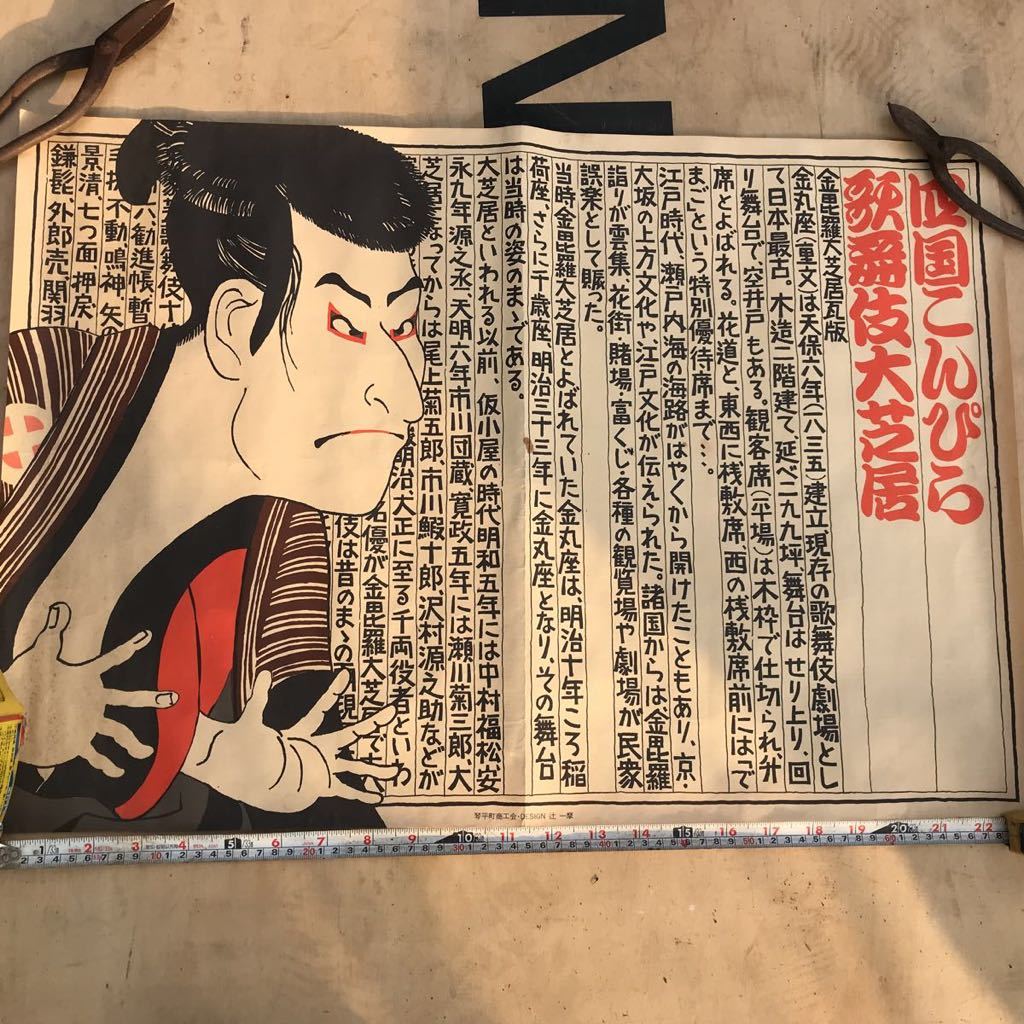 四国こんぴら
歌舞伎大芝居
金毘羅大芝居瓦版
金丸座(重文)は天保六年(一八三五)建立現存の歌舞伎劇場とし
て日本最古。木造二階建て延べ二九九坪、舞台はせり上り、回
り舞台で、空井戸もある。観客席(平場)は木枠で仕切られ弁
席とよばれる。花道と、東西に桟敷席 西の桟敷席前には「で
まご」という特別優待席まで…。
江戸時代、瀬戸内海の海路がはやくから開けたこともあり、京・
大坂の上方文化や、江戸文化が伝えられた。諸国からは金毘羅
詣りが雲集、花街・賭場・富くじ・各種の観覧場や劇場が民衆
誤楽として賑った。
当時金毘羅大芝居とよばれていた金丸座は、明治十年ごろ稲
荷座、さらに千歳座、明治三十三年に金丸座となり、その舞台
は当時の姿のまゝである。
大芝居といわれる以前、仮小屋の時代明和五年には中村福松、安
永九年源之永、天明六年市川団蔵、寛政五年には瀬川菊三郎、大
芝居になってからは尾上菊五郎、市川鰕十郎、沢村源之助などが
明治、大正に至る千両役者といわ
名優が金毘羅大芝居で
伎は昔のまゝの現
歌舞伎十
六、勧進帳、暫
不動、鳴神、矢の
景清、七つ面、押戻し
鎌髭、外郎売、関羽
琴平町商工会・DESIGN 辻 一摩
N